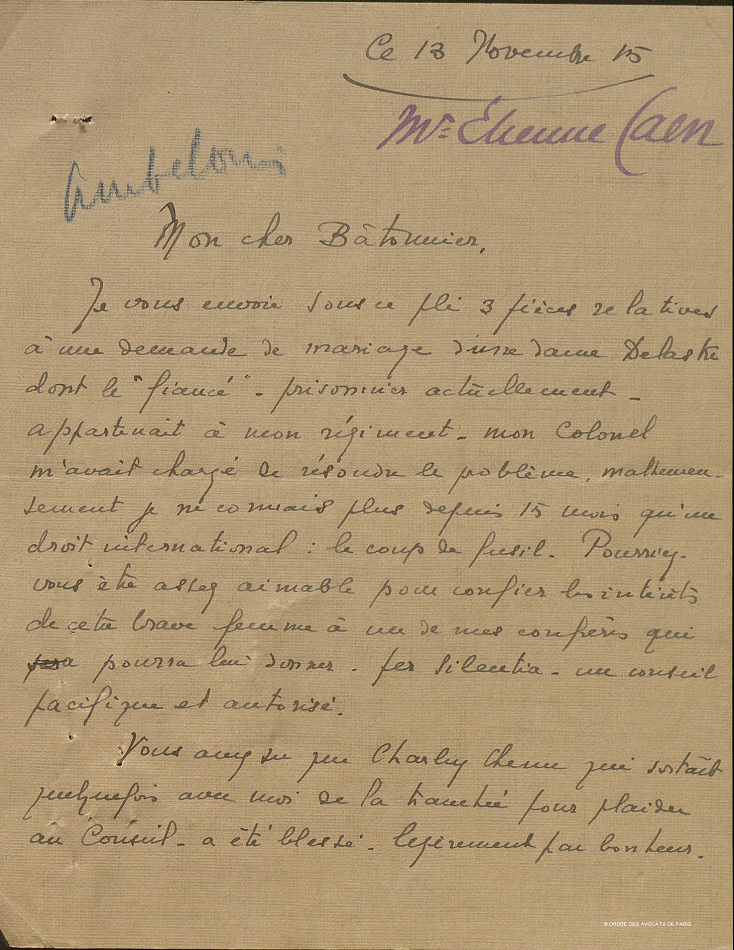 Ce 13 Novembre 15
Mr Etienne Caen
Mon cher Bâtonnier,
Je vous envoie sous ce pli 3 pièces relatives
à une demande de mariage d'une dame Delastre
dont le "fiancé" - prisonnier actuellement -
appartenait à mon régiment - mon Colonel
m'avait chargé de résoudre le problème, malheureu-
sement je ne connais plus depuis 15 mois qu'un
droit international : le coup de fusil. Pourriez-
vous être assez aimable pour confier les intérêts
de cette brave femme à un de mes confrères qui
pourra lui donner - per silentia - un conseil
pacifique et autorisé.
Vous avez su que Charley Chenu qui sortait
quelquefois avec moi de la tranchée pour plaider
au Conseil - a été blessé - légèrement par bonheur.
© ORDRE DES AVOCATS DE PARIS